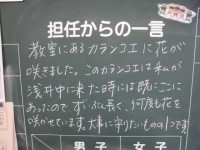 担任からの一言
教室にあるカランコエに花が
咲きました。このカランコエは私が
浅井中に来た時には既にここに
あったので、ずいぶん長く、何度も花を
咲かせています。大事に守りたいものの1つです。
男子 女子